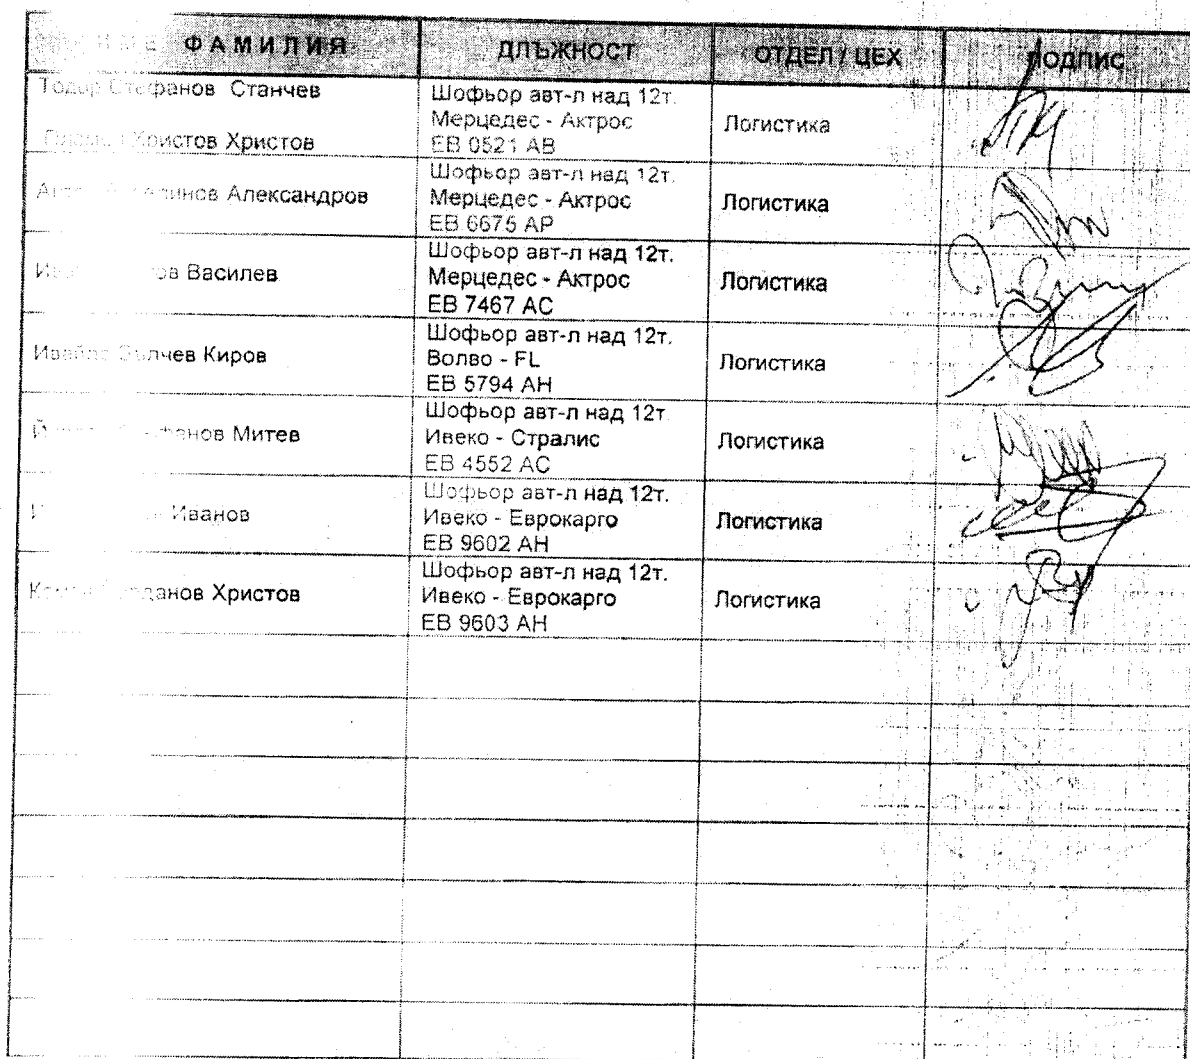 ФАМИЛИЯ ДЛЪЖНОСТ ОТДЕЛ / ЦЕХ ПОДПИС
Тодор Стефанов Станчев
Христов Христов
Шофьор авт-л над 12т.
Мерцедес - Актрос
ЕВ 0521 АВ
Логистика
Александров
Шофьор авт-л над 12т.
Мерцедес - Актрос
ЕВ 6675 АР
Логистика
Василев
Шофьор авт-л над 12т.
Мерцедес - Актрос
ЕВ 7467 АС
Логистика
Ивайло Вълчев Киров
Шофьор авт-л над 12т.
Волво - FL
ЕВ 5794 АН
Логистика
Митев
Шофьор авт-л над 12т
Ивеко - Стралис
ЕВ 4552 АС
Логистика
Иванов
Шофьор авт-л над 12т.
Ивеко - Еврокарго
ЕВ 9602 АН
Логистика
Христов
Шофьор авт-л над 12т.
Ивеко - Еврокарго
ЕВ 9603 АН
Логистика